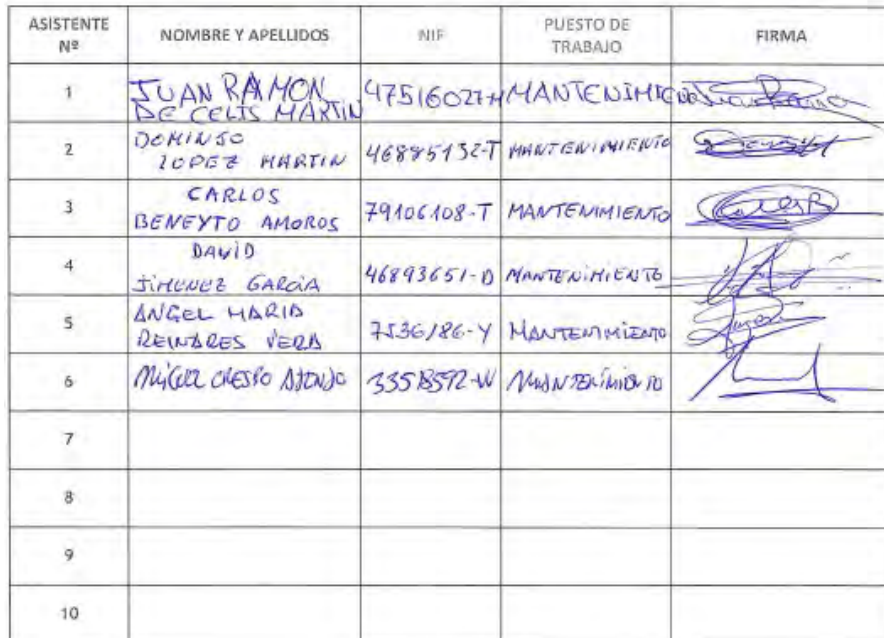 ASISTENTE Nº NOMBRE Y APELLIDOS NIF PUESTO DE TRABAJO FIRMA
1 JUAN RAMON DE CELIS MARTIN 47516027-H MANTENIMIENTO
2 DOMINGO LOPEZ MARTIN 46885132-T MANTENIMIENTO
3 CARLOS BENEYTO AMOROS 79106108-T MANTENIMIENTO
4 DAVID JIMENEZ GARCIA 46893651-D MANTENIMIENTO
5 ANGEL MARIA REINARES VERA 7536186-Y MANTENIMIENTO
6 MIGUEL CRESPO MANTENIMIENTO
7
8
9
10